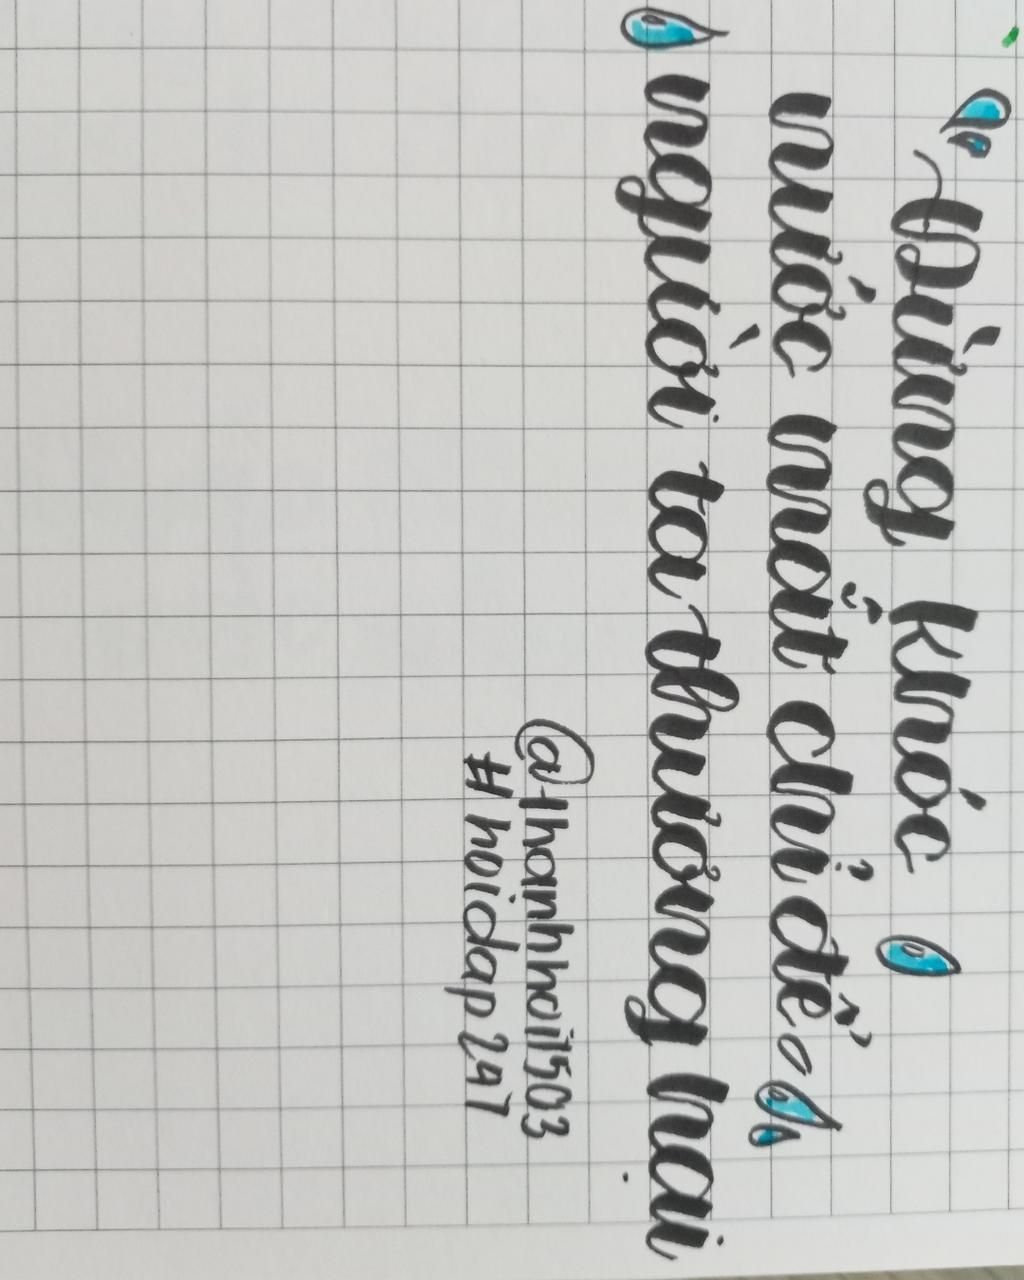 Đừng khóc
nước mắt chỉ để
người ta thương hại
@thanhhai1503
#hoidap247